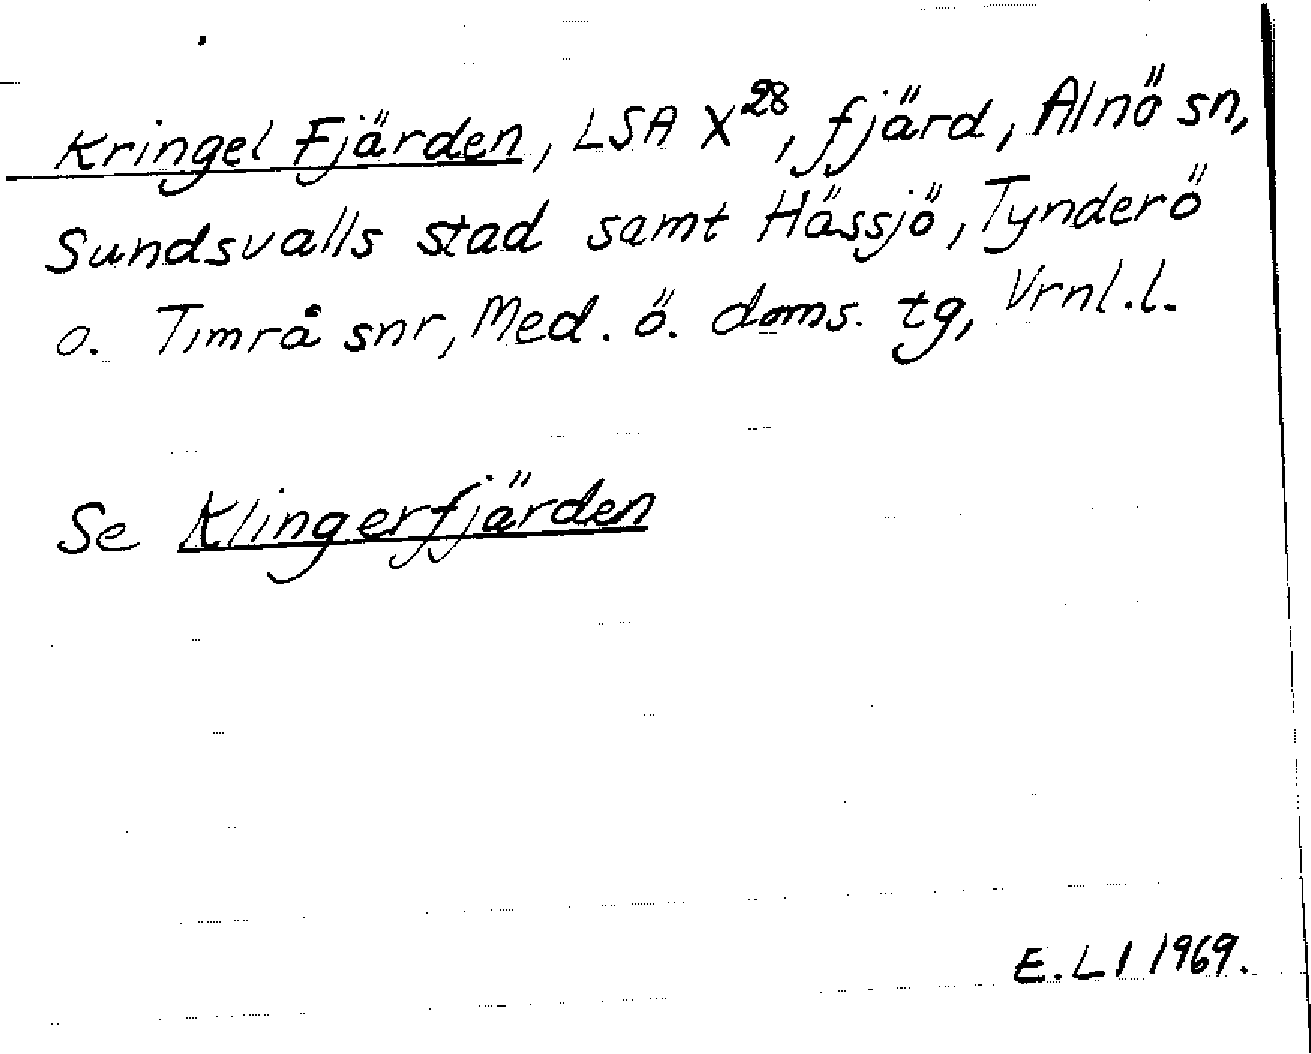 Kringel Fjärden, LSA X²⁸, fjärd, Alnö sn,
Sundsvalls stad samt Hässjö, Tynderö
o. Timrå snr, Med. ö. doms. tg, Vrnl.l.
Se Klingerfjärden
E. L I 1969.